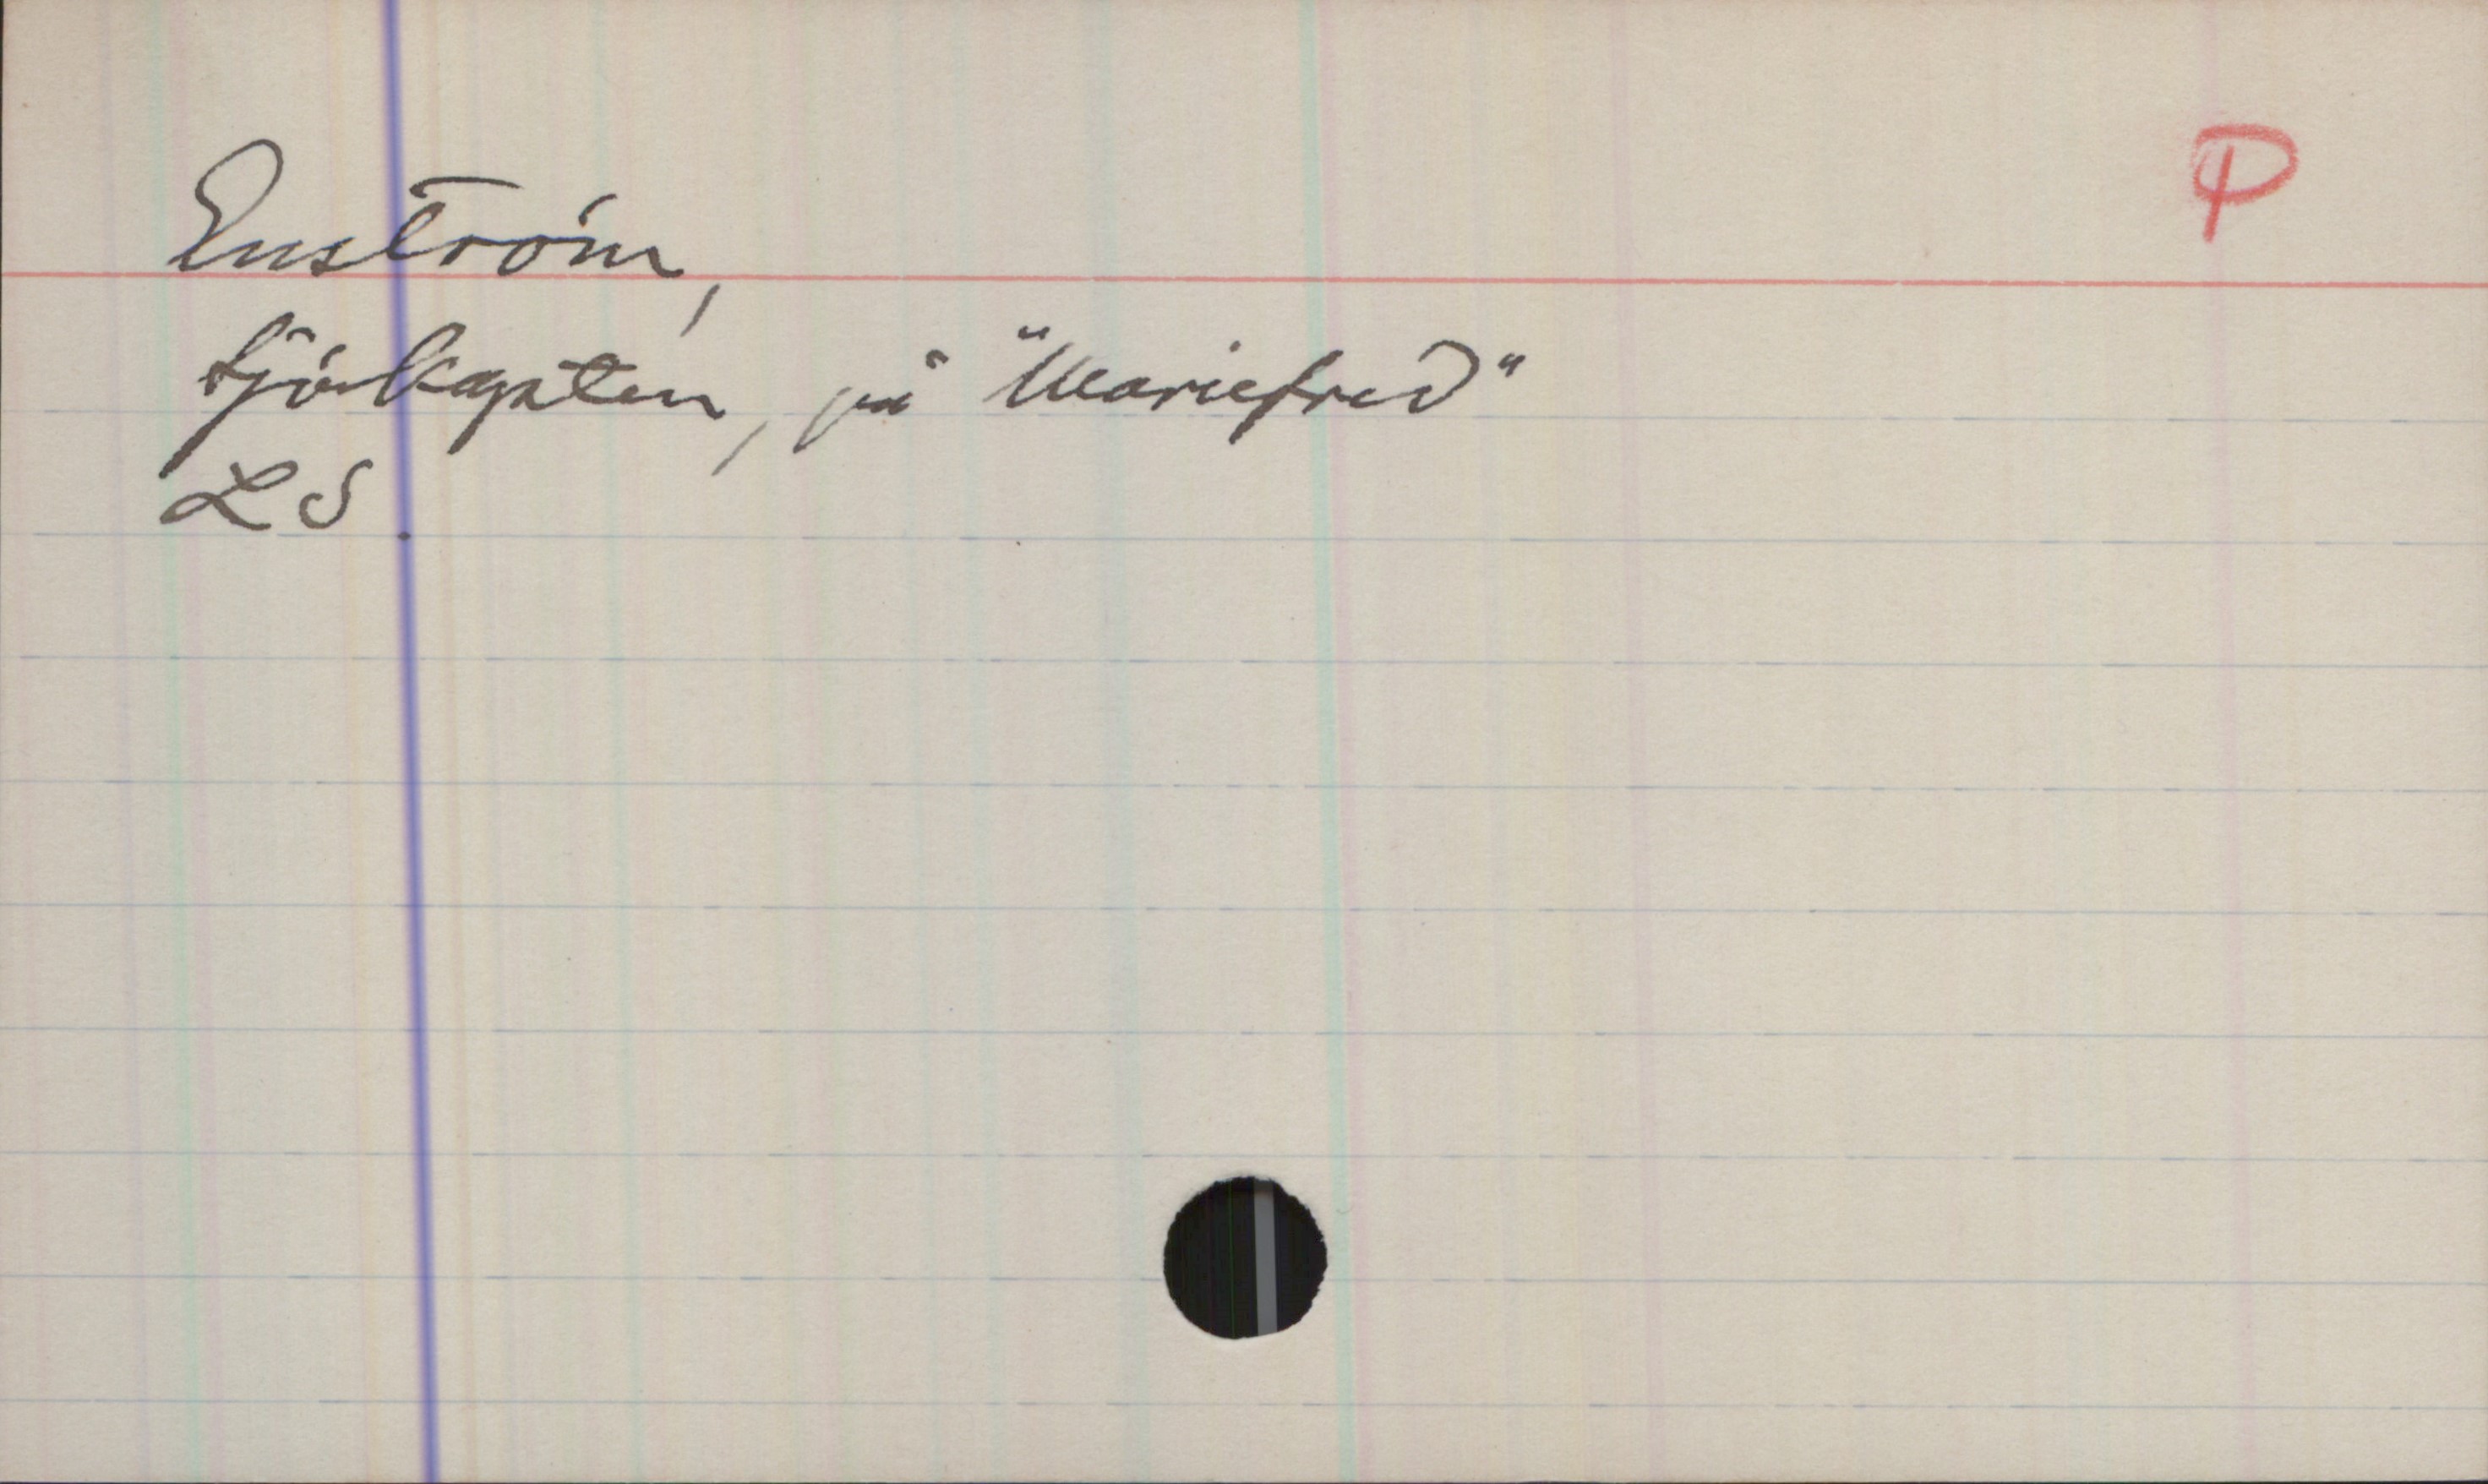 P
Enström,
sjökapten, på "Mariefred"
LS.